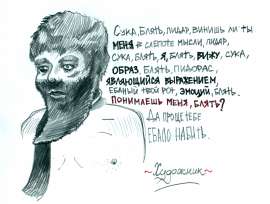 Сука, блять, пидар, винишь ли ты
меня в слепоте мысли, пидар,
сука, блять, я, блять, вижу, сука,
образ, блять, пидорас,
являющийся выражением,
ебаный твой рот, эмоций, блять.
Понимаешь меня, блять?
Да проще тебе
ебало набить.
~Художник~